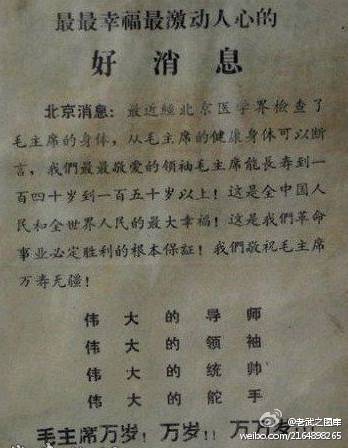 最最幸福最激动人心的
好消息
北京消息：最近經北京医学界檢查了
毛主席的身体，从毛主席的健康身体可以断
言，我們最最敬爱的領袖毛主席能長寿到一
百四十岁到一百五十岁以上！这是全中国人
民和全世界人民的最大幸福！这是我們革命
事业必定胜利的根本保証！我們敬祝毛主席
万寿无疆！
伟大的导师
伟大的領袖
伟大的統帅
伟大的舵手
毛主席万岁！万岁！！万万岁！！！
老武之图库
weibo.com/2164898265